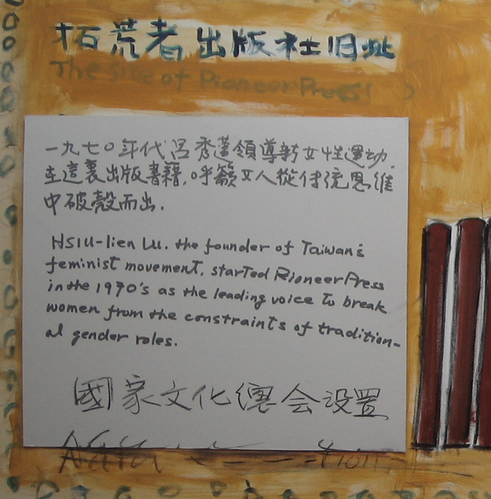 拓荒者出版社旧址
The site of Pioneer Press
一九七〇年代呂秀蓮領導新女性運动,
在這裏出版書籍,呼籲女人從传统思维
中破殼而出.
Hsiu-lien Lu, the founder of Taiwan's
feminist movement, started Pioneer Press
in the 1970's as the leading voice to break
women from the constraints of tradition-
al gender roles.
國家文化總会设置